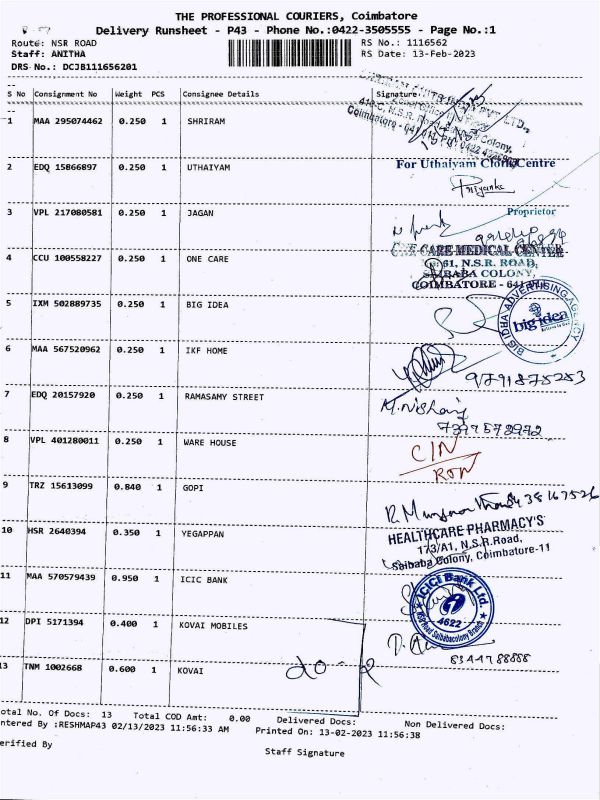 THE PROFESSIONAL COURIERS, Coimbatore
Delivery Runsheet - P43 - Phone No.:0422-3505555 - Page No.:1
Route: NSR ROAD
RS No.: 1116562
Staff: ANITHA
RS Date: 13-Feb-2023
DRS No.: DCJB111656201
S No Consignment No Weight PCS Consignee Details Signature
1 MAA 295074462 0.250 1 SHRIRAM
2 EDQ 15866897 0.250 1 UTHAIYAM
For Uthaiyam Cloth Centre
Priyanka
Proprietor
3 VPL 217080581 0.250 1 JAGAN
4 CCU 100558227 0.250 1 ONE CARE
ONE CARE MEDICAL CENTER
61, N.S.R. ROAD,
SAIBABA COLONY,
COIMBATORE - 641
5 IXM 502889735 0.250 1 BIG IDEA
BIG IDEA ADVERTISING AGENCY
big idea
6 MAA 567520962 0.250 1 IKF HOME
9791875253
7 EDQ 20157920 0.250 1 RAMASAMY STREET
8 VPL 401280011 0.250 1 WARE HOUSE
CIN
9 TRZ 15613099 0.840 1 GOPI
10 HSR 2640394 0.350 1 YEGAPPAN
HEALTHCARE PHARMACY'S
173/A1, N.S.R.Road,
Saibaba Colony, Coimbatore-11
11 MAA 570579439 0.950 1 ICIC BANK
ICICI Bank Ltd.
4622
NSR Road Saibabacolony Branch
12 DPI 5171394 0.400 1 KOVAI MOBILES
8344788888
13 TNM 1002668 0.600 1 KOVAI
done
otal No. Of Docs: 13 Total COD Amt: 0.00 Delivered Docs: Non Delivered Docs:
ntered By :RESHMAP43 02/13/2023 11:56:33 AM Printed On: 13-02-2023 11:56:38
erified By
Staff Signature